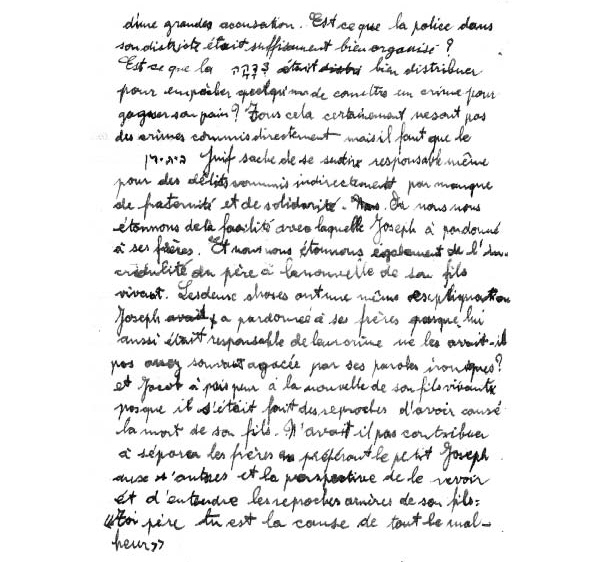 d'une grandes accusation. Est ce que la police dans
son districte était suffisament bien organisé ?
Est ce que la צדקה était distri bien distribuer
pour empaicher quelqu'un de comettre en crime pour
gagner son pain ? Tous cela certainement ne sont pas
des crimes commis directement mais il faut que le
בית-דין Juif sache de se sentire responsable même
pour des délits commis indirectement par manque
de fraternité et de solidarité. Or nous nous
étonnons de la facilité avec laquelle Joseph à pardonné
à ses frères. Et nous nous étonnons également de l'in-
crédulité du père à la nouvelle de son fils
vivant. Les deux choses ont une même explique
Joseph avait a pardonneé à ses frères parque lui
aussi était responsable de leur crime ne les avait-il
pas assez souvant agacée par ses paroles ironiques ?
et Jacob à pris peur à la nouvelle de son fils vivante
parque il s'était fait des reproches d'avoir causé
la mort de son fils. N'avait il pas contribuer
à séparer les frères en préférant le petit Joseph
aux autres et la perspective de le revoir
et d'entendre les reproches amères de son fils :
« Toi père tu est la cause de tout le mal-
heur »